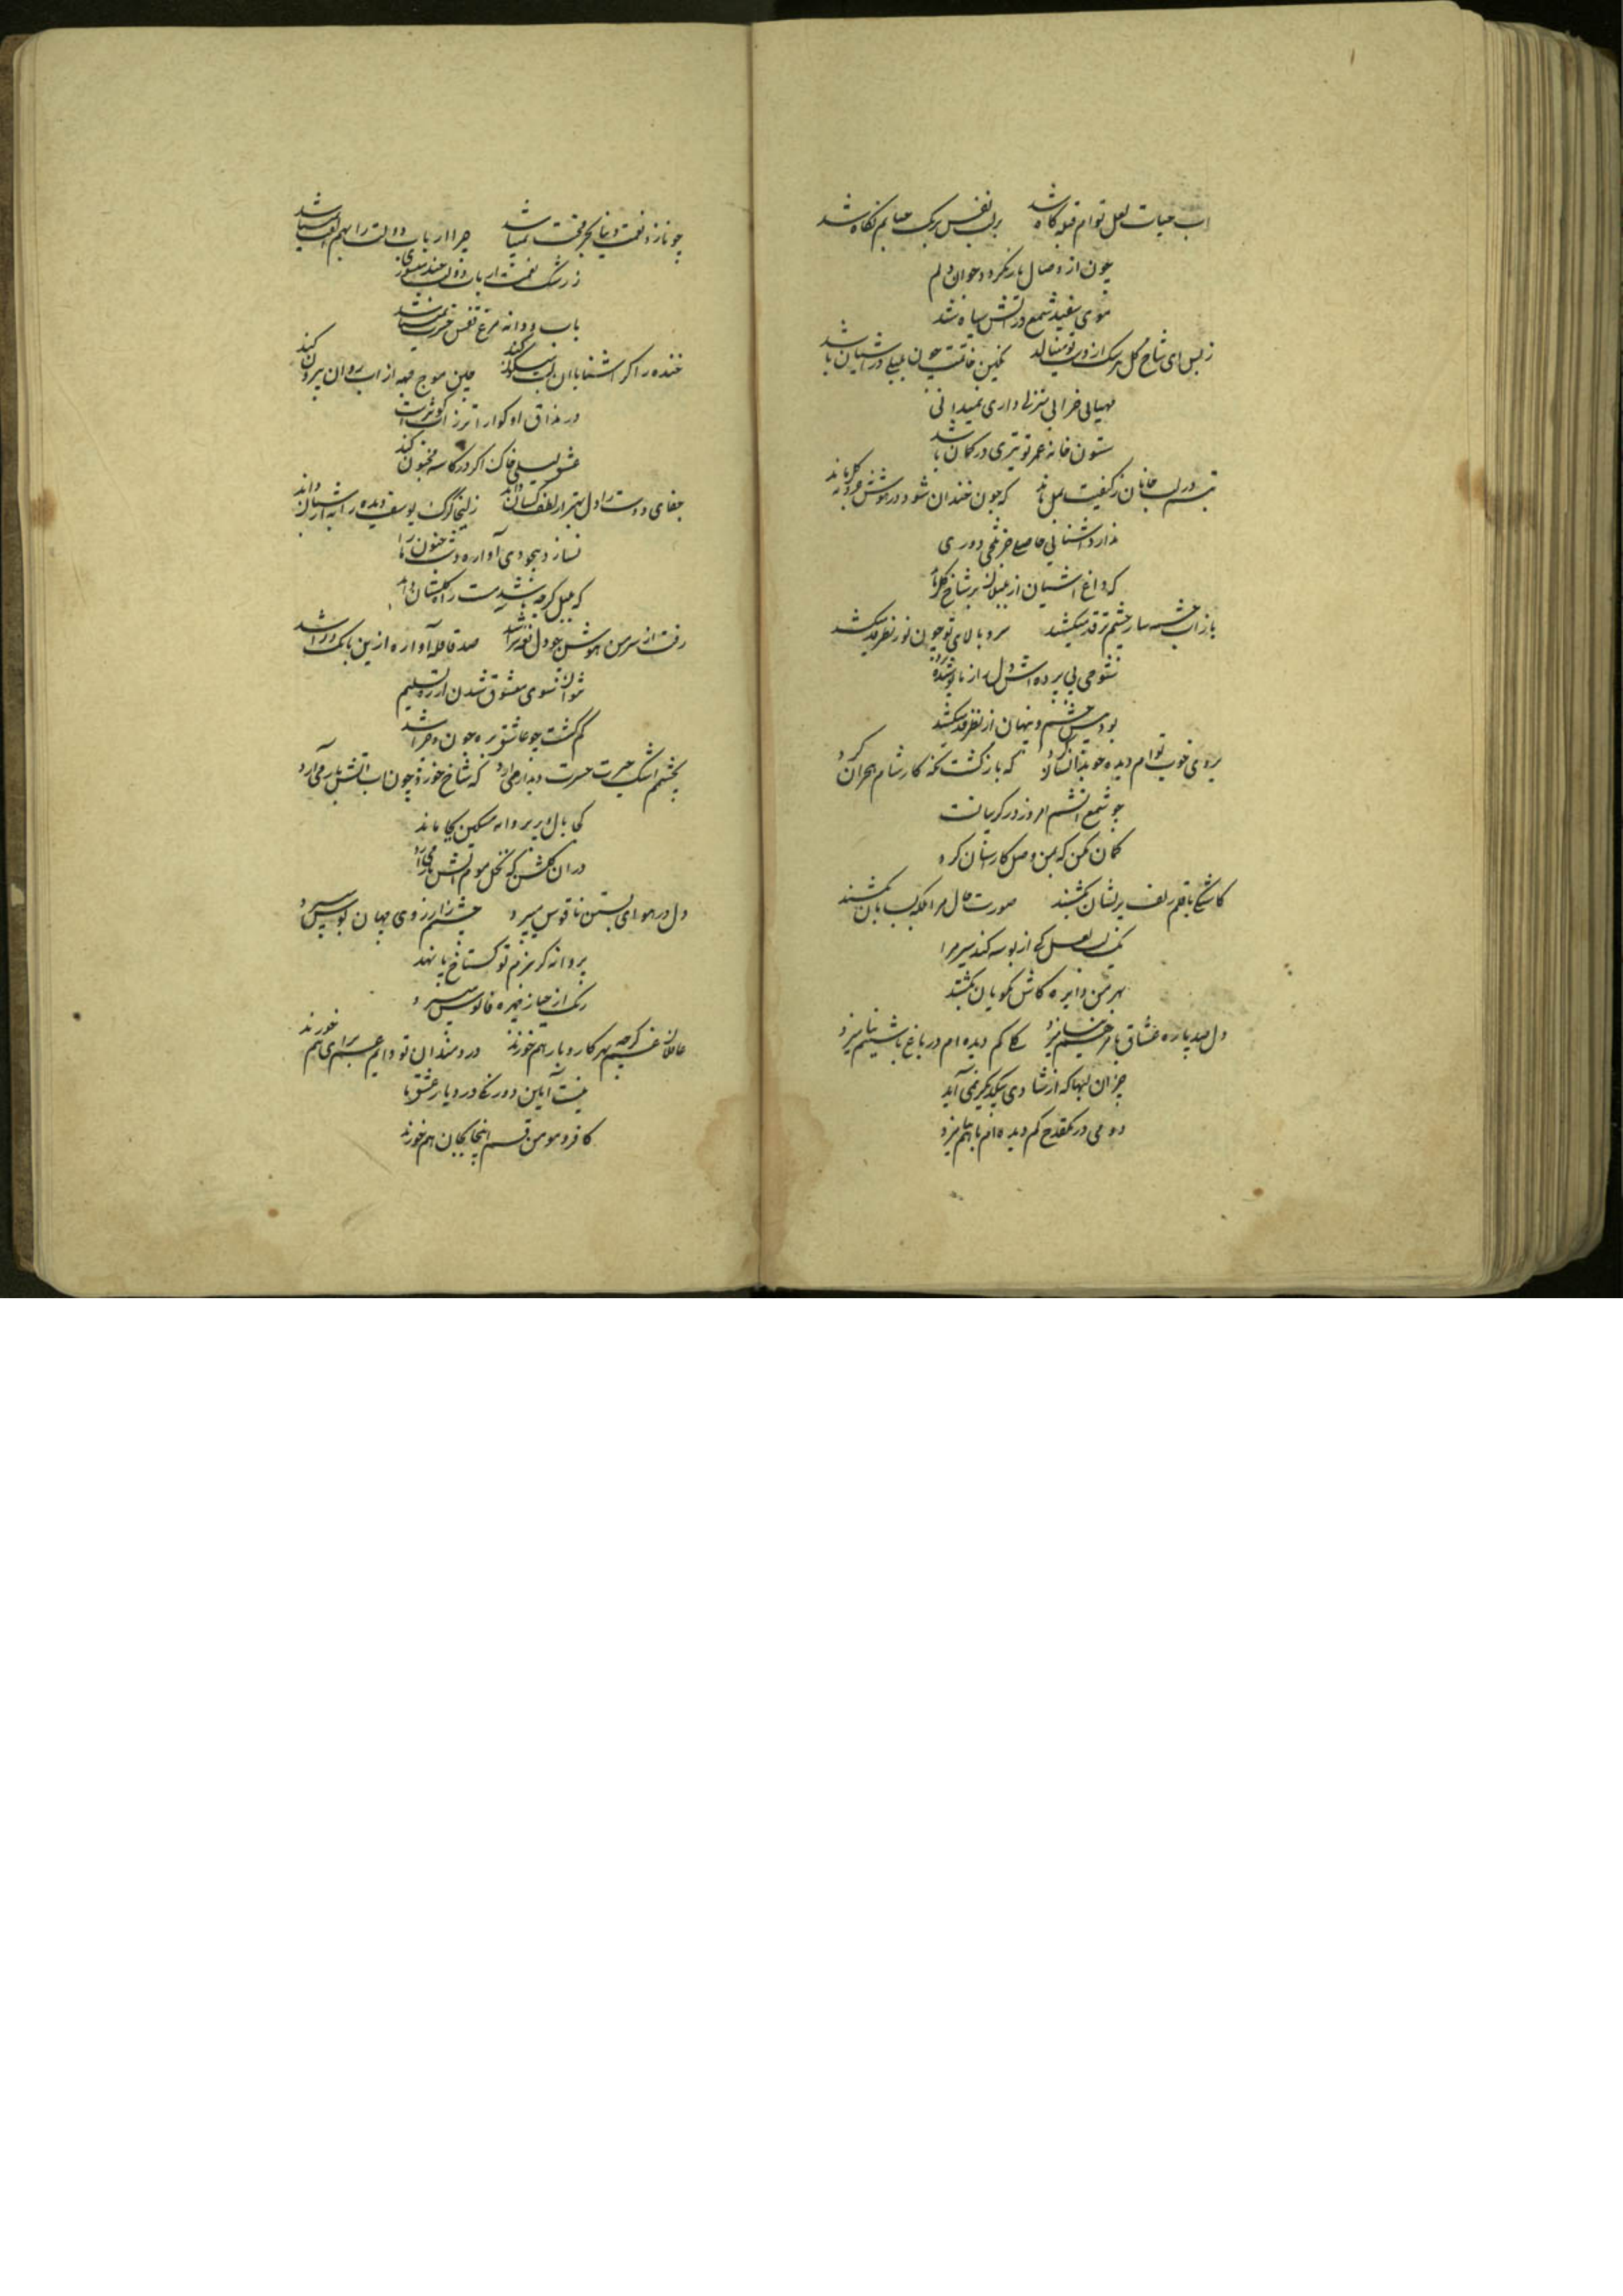 اب حیات لعل توام قبله کاه شد برلب نفس حبابم نکاه شد
چون از وصال یار نکردد جوان دلم
موی سفید شمع در اتش سیاه شد
زبس ای شاخ کل هر یک از دست تو مینالد نکین خانه چون بلبلی در اشیان باشد
مهیای خرابی منزلی داری نمیدانی
ستون خانه عمر تو تیری در کمان باشد
تبسم در لب جانان زکیفیت بمل ماند که چون خندان شود در
ندارد اشنایی حاصلی دوری
که داغ اشیان از بلبلان بر شاخ کل ماند
باز اب چشمه سار چشم تر قد میکشد سرو بالای تو چون نور نظر قد میکشد
شوخی بی پرده اش دل از
بود پیش چشم و پنهان از نظر قد میکشد
بروی خوب توام دیده که بازکشت کار شام هجران کرد
چو شمع اتشم امروز در کریبانست
کمان مکن که بمن وصل کار اسان کرد
کاشکی با قلم زلف پریشان بکشند صورت حال مرا
لعل کی از بوسه کند سیر مرا
بهر من دایره کاش نکویان بکشند
دل صد پاره عشاق با هر کم دیده ام در باغ با شبنم نیامیزد
جز ان لبها که از شادی بیکدیکر نمی آید
دو می در یکقدح کم دیده ام با هم نیامیزد
چو نازد نعمت دنیا نمیباشد چرا ارباب دولت را بهم
ز رشک نعمت ارباب دولت چند میسوزی
باب و دانه مرغ قفس حسرت نمیباشد
خنده را کر اشنا با ان لب میکون کند چین موج از اب روان بیرون کند
در مذاق او کوارا تر ز اب کوثرست
عشق لیلی خاک اکر در کاسه مجنون کند
جفای دوست را دل بهتر از لطف کسان داند زلیخا کرک یوسف دیده را به از شبان داند
نسازد بیخودی آواره دشت جنون ما را
که بلبل کرچه باشد مست راه کلستان داند
رفت از سر من هوش چو دل نغمه سرا شد صد قافله آواره ازین بانک درا شد
نتوان سوی معشوق شدن از ره تسلیم
کم کشت چو عاشق بره چون و چرا شد
بچشمم اشک حیرت حسرت دیدار می آرد که شاخ خورد چون اب اتش بار می آرد
کی بال و پر پروانه مسکین بجا ماند
در ان کلشن که نخل موم اتش بار می آرد
دل در هوای بستن ناقوس میپرد چشمم ز ارزوی جهان بوس میپرد
پروانه کر ببزم تو کستاخ پا نهد
رنک از حیا ز چهره فانوس میپرد
عاقلان کرچه غم بهر کار و بار هم خورند دردمندان تو دایم غم برای هم خورند
نیست آیین دورنکی در دیار عشق ما
کافر و مومن قسم اینجا بجان هم خورند